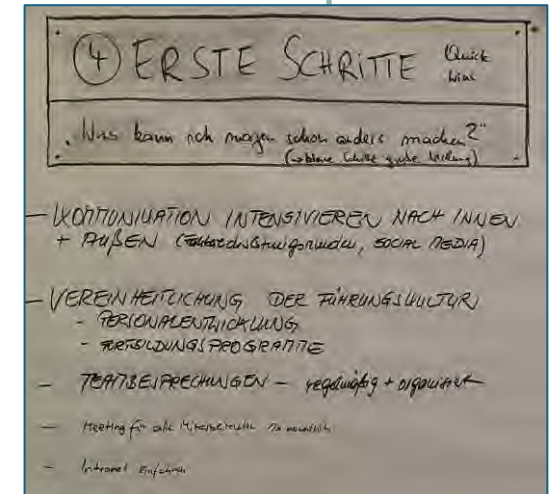 ④ ERSTE SCHRITTE Quick
Wins
„Was kann ich morgen schon anders machen?"
(→ kleine Schritte große Wirkung)
- KOMMUNIKATION INTENSIVIEREN NACH INNEN
+ AUßEN (SOCIAL MEDIA)
- VEREINHEITLICHUNG DER FÜHRUNGSKULTUR
- PERSONALENTWICKLUNG
- FORTBILDUNGSPROGRAMME
- TEAMBESPRECHUNGEN - regelmäßig + organisiert
- Meeting für alle Mitarbeitenden monatlich
- Intranet einführen